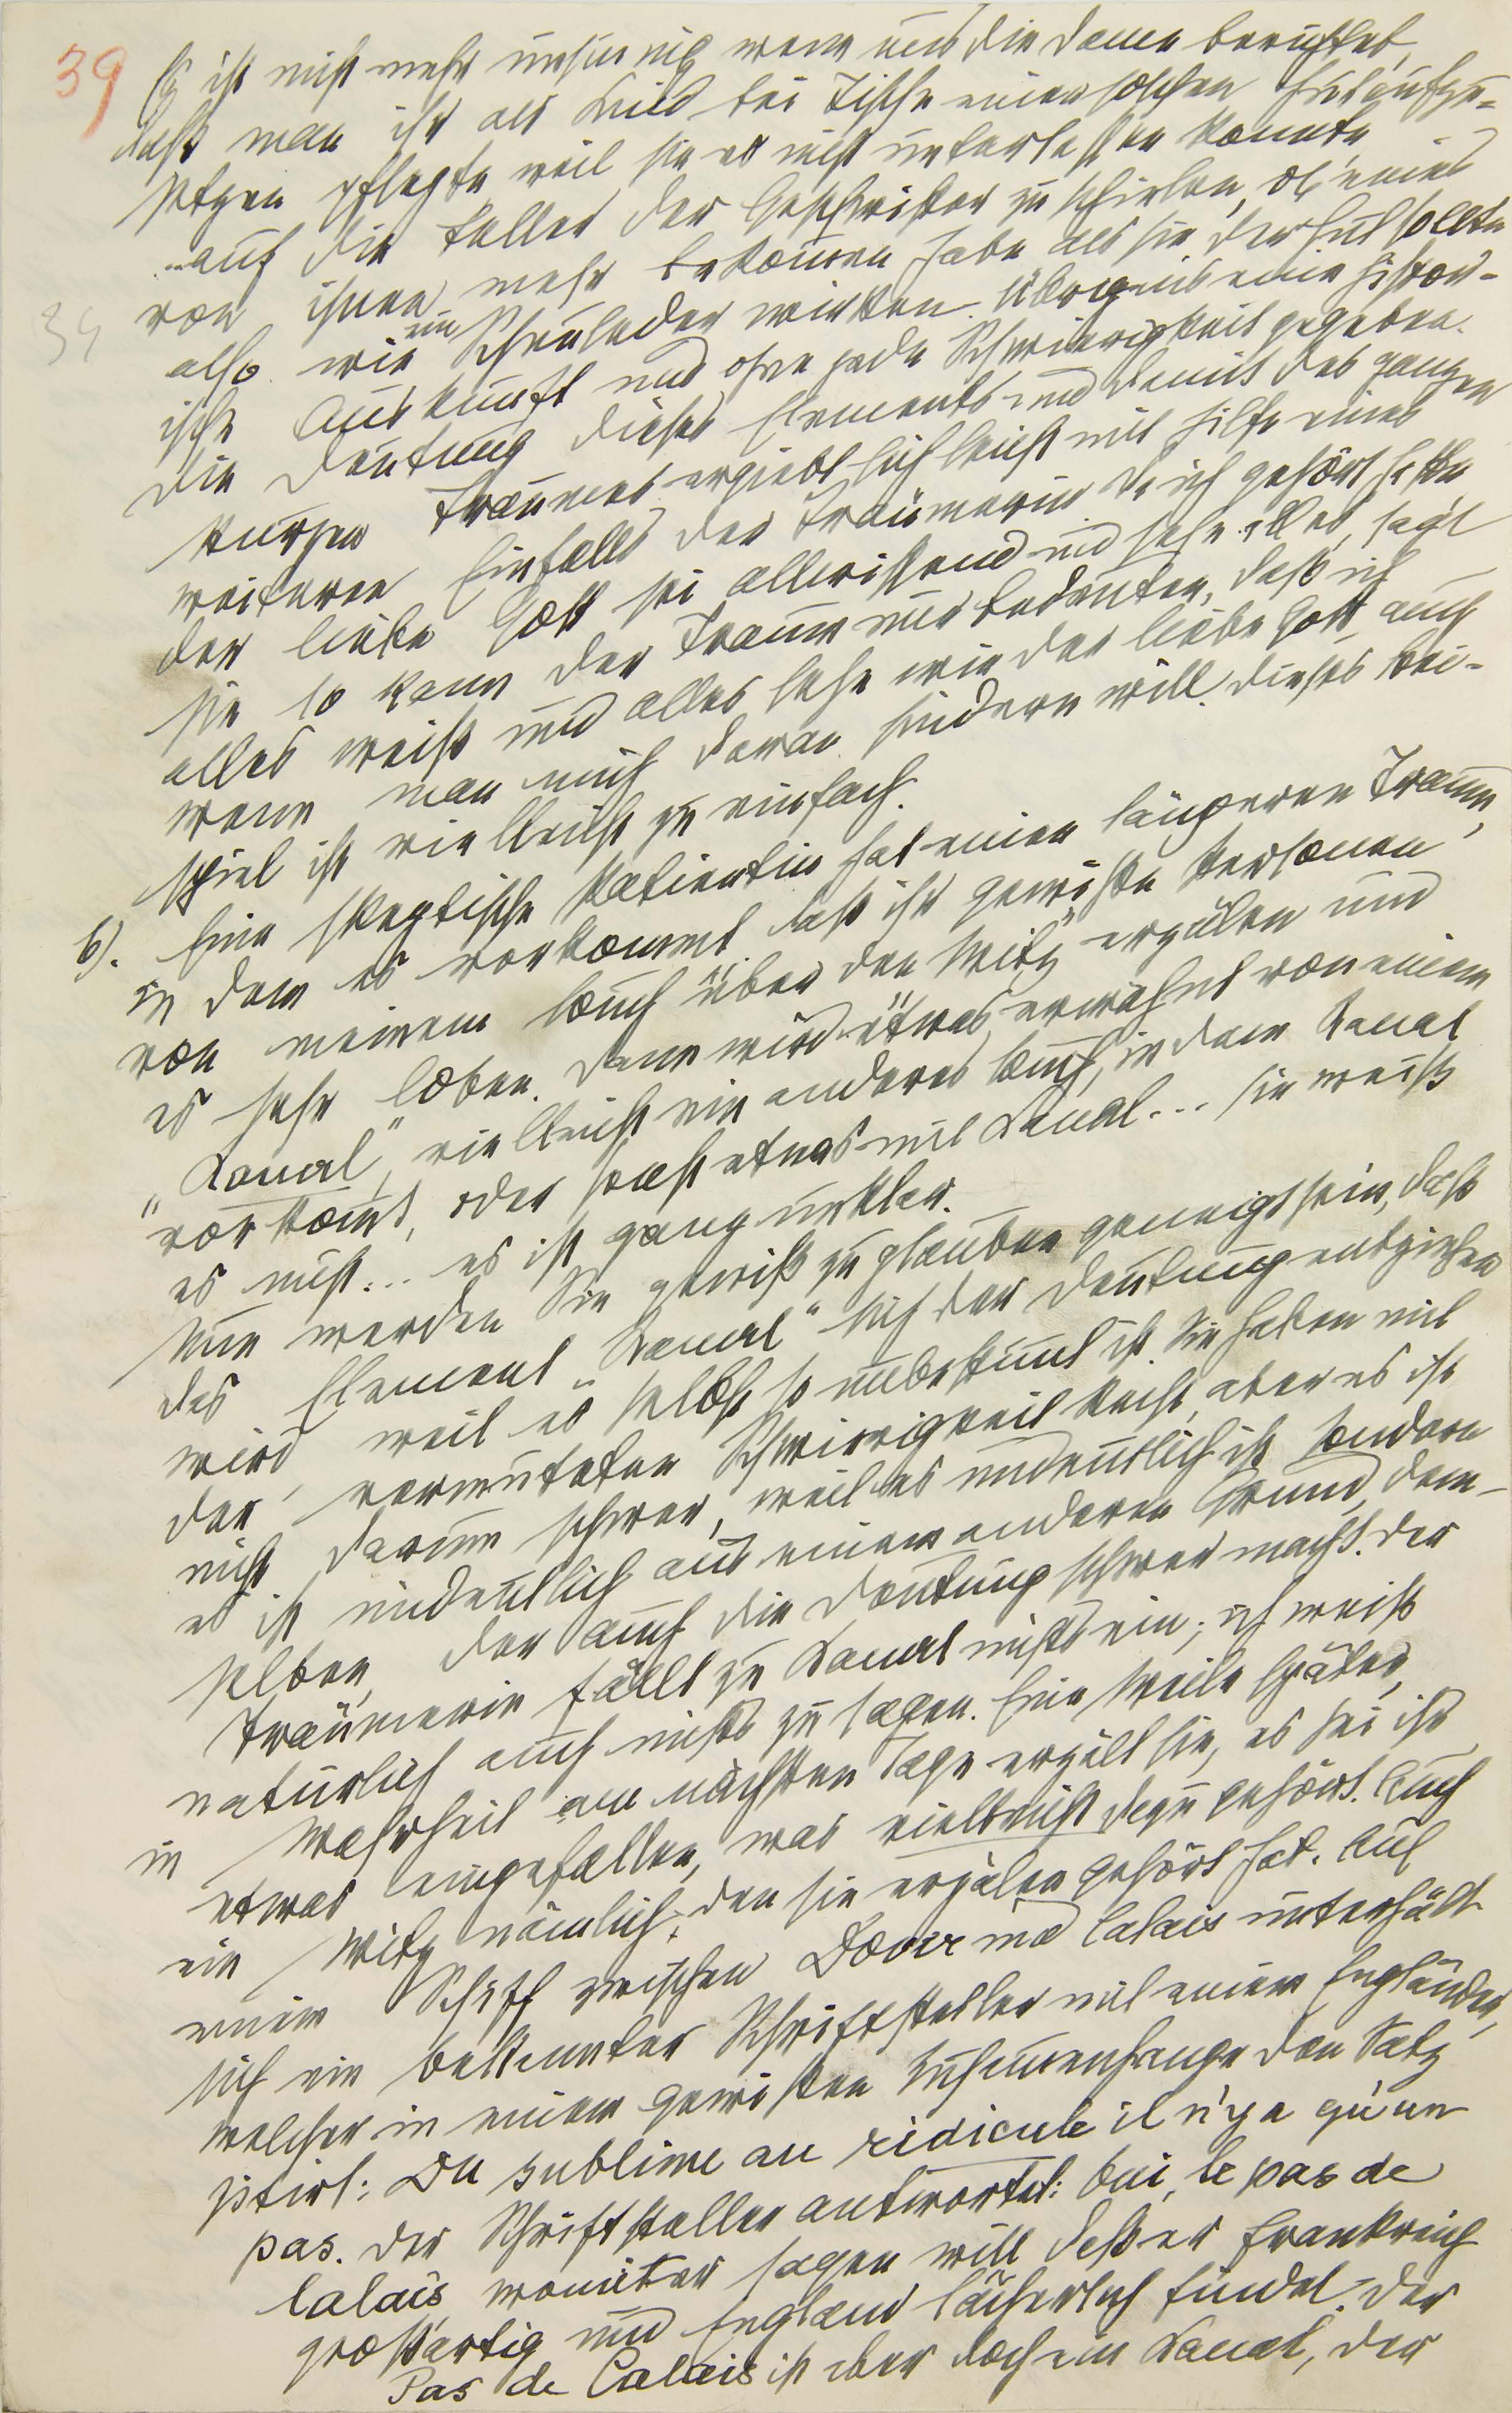 39
Es ist nicht mehr unsinnig wenn uns die Dame berichtet,
daß man ihr als Kind bei Tische einen solchen Hut aufzu-
setzen pflegte weil sie es nicht unterlassen konnte
auf die Teller der Geschwister zu schielen, ob eines
von ihnen mehr bekommen habe als sie. Der Hut sollte
39
also wie ein Scheuleder wirken. Übrigens eine histor-
ische Auskunft und ohne jede Schwierigkeit gegeben.
Die Deutung dieses Elements und damit des ganzen
kurzen Traumes ergiebt sich leicht mit Hilfe eines
weiteren Einfalls der Träumerin. Da ich gehört hatte
der liebe Gott sei allwissend und sehe alles, sagt
sie so kann der Traum nur bedeuten, daß ich
alles weiß und alles sehe wie der liebe Gott auch
wenn man mich daran hindern will. Dieses Bei-
spiel ist vielleicht zu einfach.
b). Eine skeptische Patientin hat einen längeren Traum,
in dem es vorkommt daß ihr gewisse Personen
von meinem Buch über den "Witz" erzälen und
es sehr loben. Dann wird etwas erwähnt von einem
"Kanal", vielleicht ein anderes Buch, in dem Kanal
vorkomt, oder sonst etwas mit Kanal... sie weiß
es nicht... es ist ganz unklar.
Nun werden Sie gewiß zu glauben geneigt sein, daß
das Element "Kanal" sich der Deutung entziehen
wird weil es selbst so unbestimmt ist. Sie haben mit
der vermuteten Schwierigkeit Recht, aber es ist
nicht darum schwer, weil es undeutlich ist sondern
es ist undeutlich aus einem anderen Grund, dem-
selben, der auch die Deutung schwer macht. Der
Träumerin fällt zu Kanal nichts ein; ich weiß
natürlich auch nichts zu sagen. Eine Weile später,
in Wahrheit am nächsten Tage erzält sie, es sei ihr
etwas eingefallen, was vielleicht dazu gehört. Auch
ein Witz nämlich, den sie erzälen gehört hat. Auf
einem Schiff zwischen Dover und Calais unterhält
sich ein bekannter Schriftsteller mit einem Engländer,
welcher in einem gewissen Zusammenhange den Satz
zitirt: Du sublime au ridicule il n'y a qu'un
pas. Der Schriftsteller antwortet: Oui, le pas de
Calais womit er sagen will daß er Frankreich
großartig und England lächerlich findet. Der
Pas de Calais ist aber doch ein Kanal, der